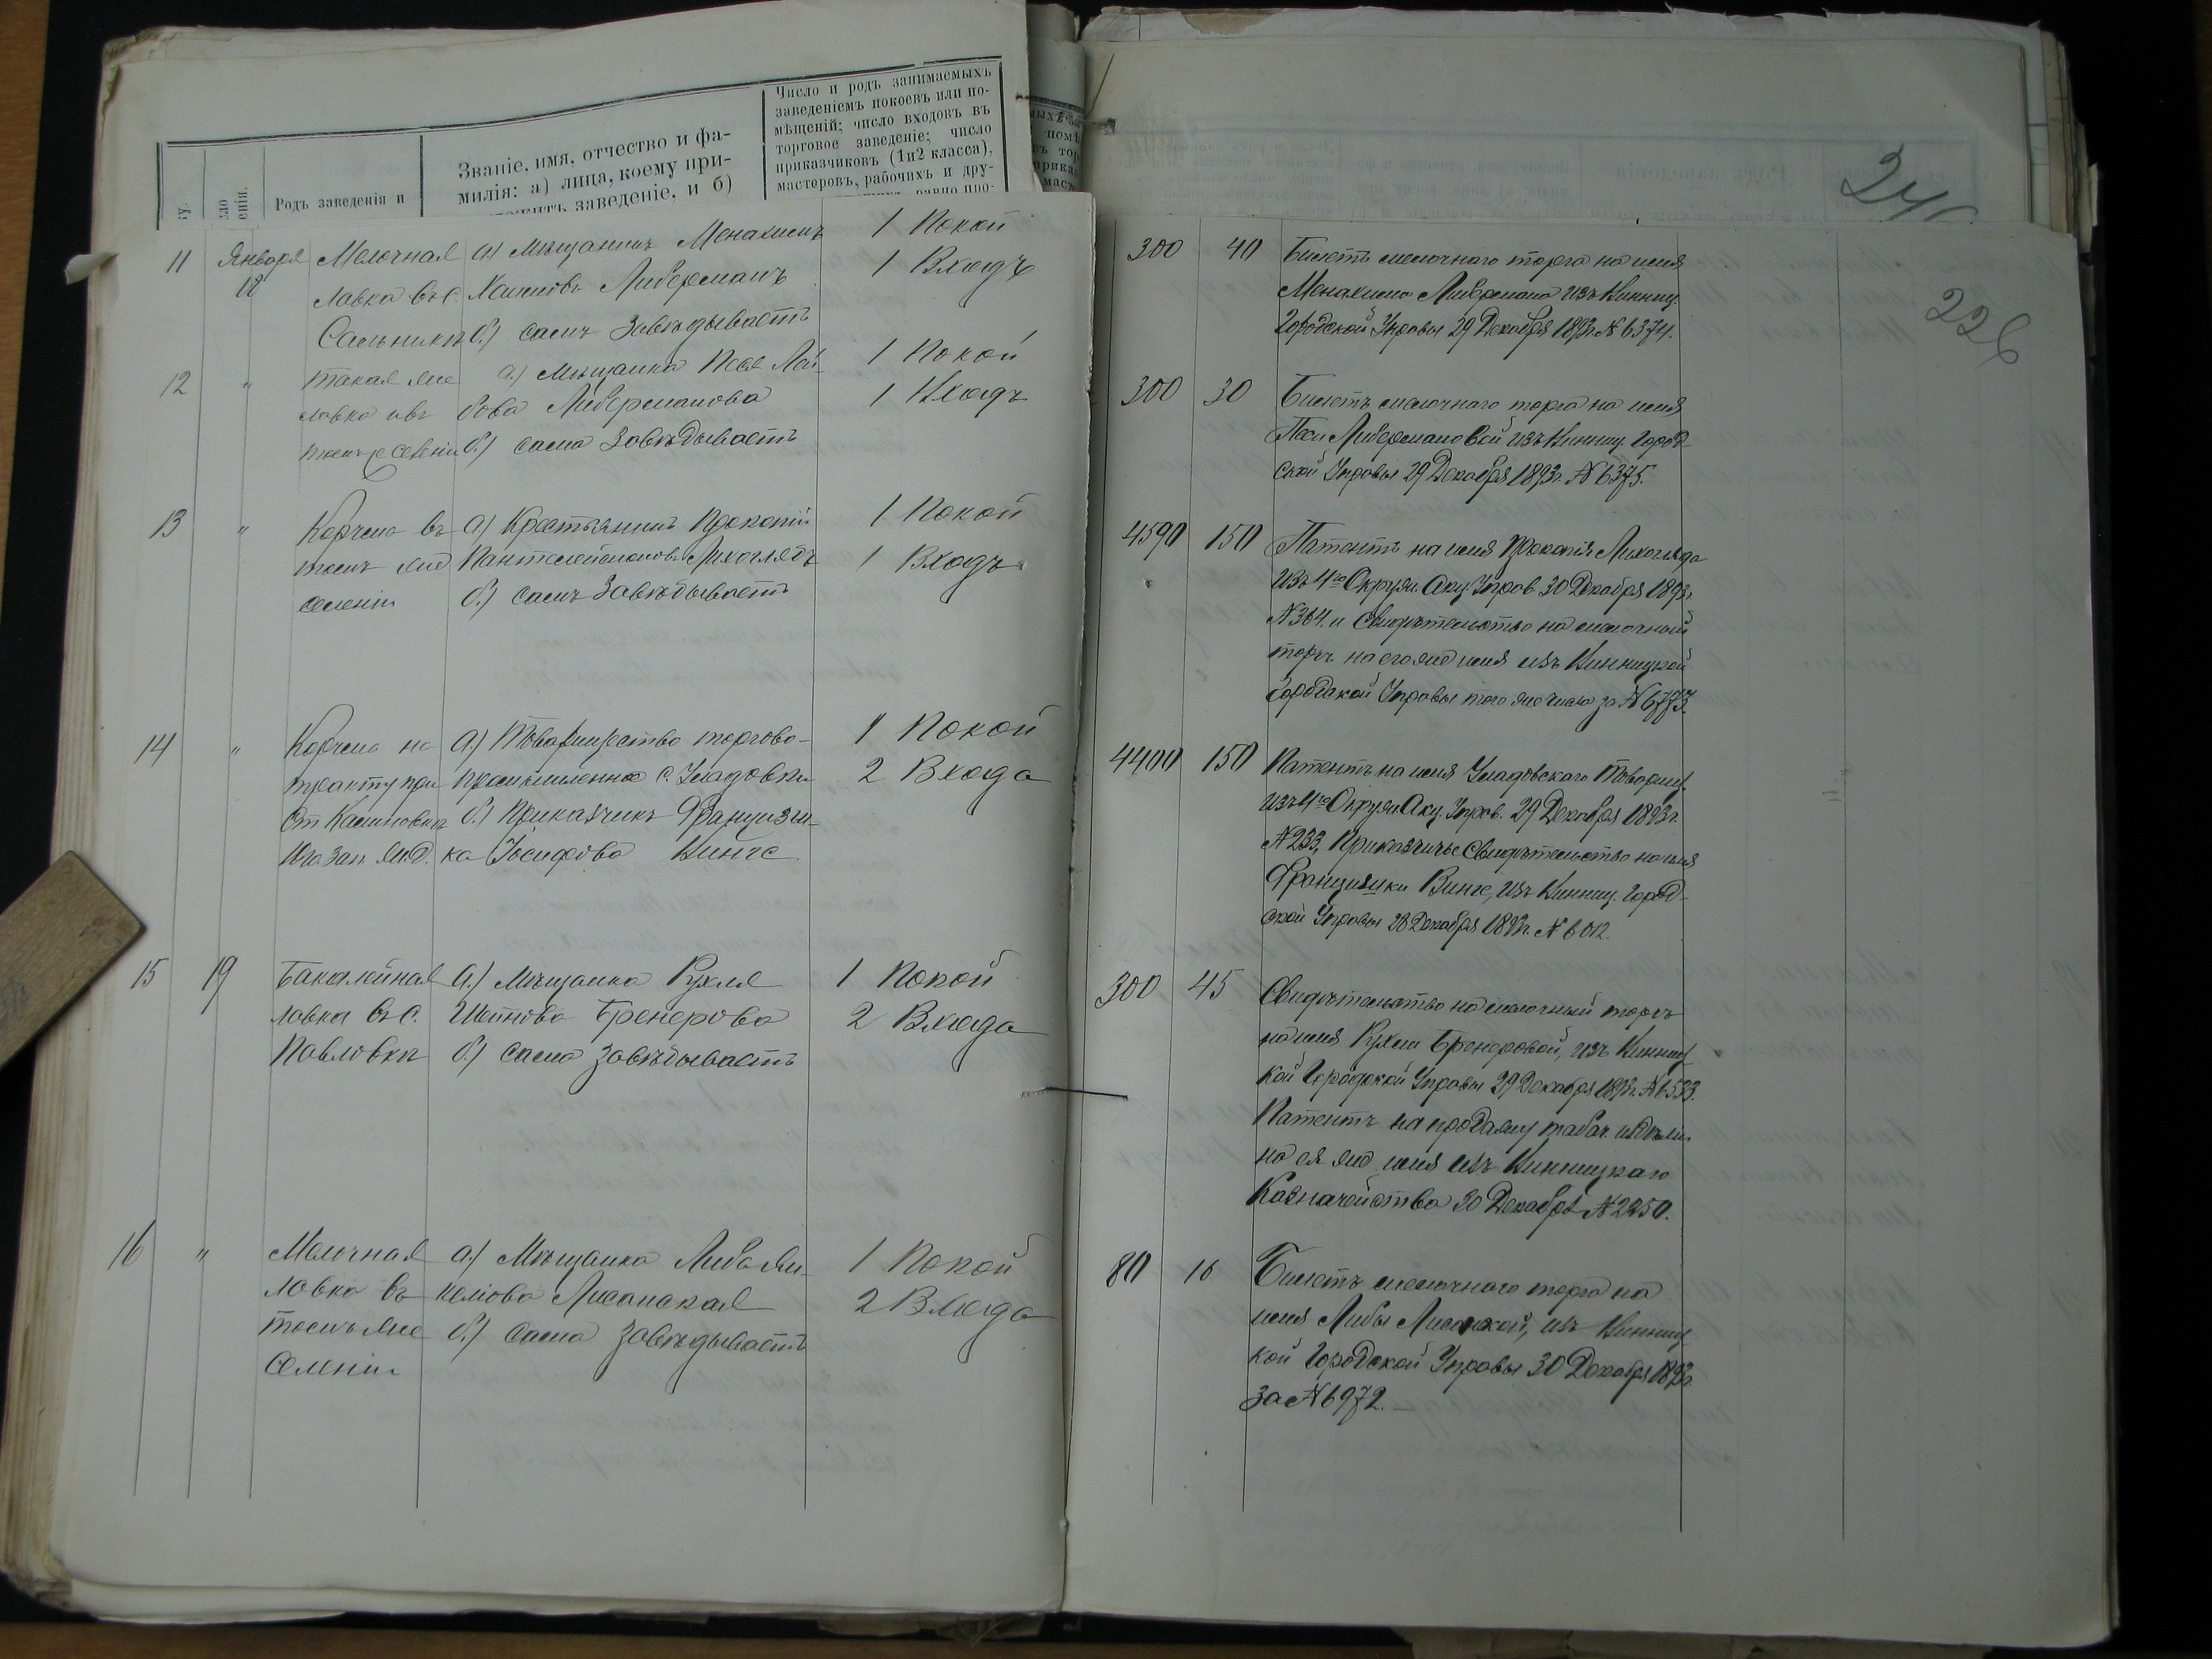 Родъ заведенія и
Званіе, имя, отчество и фа-
милія: а) лица, коему при-
заведеніе, и б)
Число и родъ занимаемыхъ
заведеніемъ покоевъ или по-
мѣщеній; число входовъ въ
торговое заведеніе; число
приказчиковъ (1и2 класса),
мастеровъ, рабочихъ и дру-
11 Января 18
Мелочная
лавка въ с.
Сальникѣ
а) Мѣщанинъ Менахимъ
Хаимовъ Либерманъ
б.) самъ Завѣдываетъ
1 Покой
1 Входъ
12 "
такая же
лавка въ
томъ же селеніи
а.) Мѣщанка Песя Лей-
бова Либерманова
б.) сама Завѣдываетъ
1 Покой
1 Входъ
13 "
Корчма въ
томъ же
селеніи
а) Крестьянинъ Прокопій
Пантелеймоновъ Лихоглядъ
б.) самъ Завѣдываетъ
1 Покой
1 Входъ
14 "
Корчма на
тракту при
ст. Калиновкѣ
Югозап. ж.д.
а.) Товарищество торгово-
промышленное с. Уладовки
б.) Приказчикъ Францизш-
ка Іосифова Винге
1 Покой
2 Входа
15 19
Бакалейная
лавка въ с.
Павловкѣ
а.) Мѣщанка Рухля
Бренерова
б.) сама завѣдываетъ
1 Покой
2 Входа
16 "
Мелочная
лавка въ
томъ же
селеніи
а.) Мѣщанка Либа Ян-
келіова Лисанская
б.) сама завѣдываетъ
1 Покой
2 Входа
226
300 40
Билетъ мелочного торга на имя
Менахима Либермана изъ Винниц.
Городской Управы 29 Декабря 1893г. № 6374.
300 30
Билетъ мелочнаго торга на имя
Песи Либермановой изъ Винниц. Город-
ской Управы 29 Декабря 1893г. № 6375.
4590 150
Патентъ на имя Прокопія Лихогляда
изъ 4го Окружн. Акц. Управ. 30 Декабря 1893г.
№ 364. и Свидѣтельство на мелочный
торгъ на его же имя изъ Винницкой
Городской Управы того же числа за № 6773.
4400 150
Патентъ на имя Уладовскаго Товарищ.
изъ 4го Окружн. Акц. Управ. 29 Декабря 1893г.
№ 233, Приказчичье Свидѣтельство на имя
Францишки Винге, изъ Винниц. Город-
ской Управы 28 Декабря 1893г. № 6012.
300 45
Свидѣтельство на мелочный торгъ
на имя Рухли Бренеровой, изъ Винниц-
кой Городской Управы 29 Декабря 1893г. № 6533.
Патентъ на продажу табач. издѣлій
на ея же имя изъ Винницкаго
Казначейства 30 Декабря № 2250.
80 16
Билетъ мелочнаго торга на
имя Либы Лисанской, изъ Винниц-
кой Городской Управы 30 Декабря 1893г.
за № 6972.